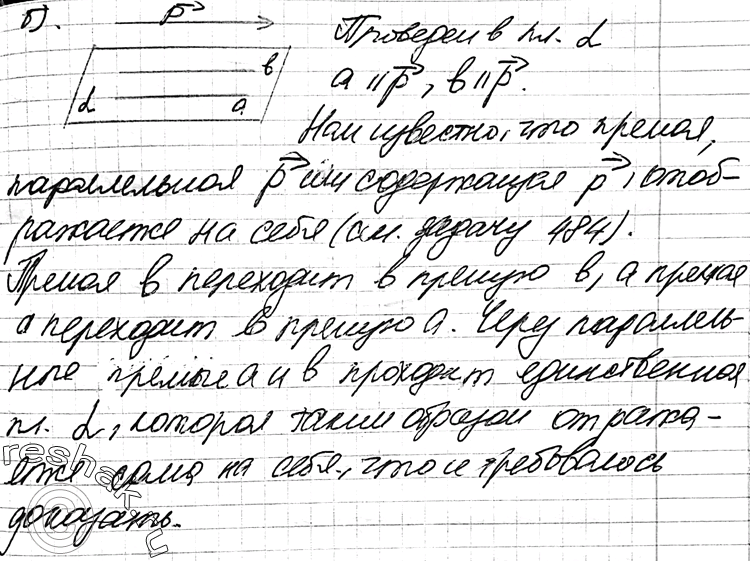 б). p
Проведем в пл. α
в
α a
a || p, в || p.
Нам известно, что прямая,
параллельная p или содержащая p, отоб-
ражается на себя (см. задачу 484).
Прямая в переходит в прямую в, а прямая
a переходит в прямую a. Через параллель-
ные прямые a и в проходит единственная
пл. α, которая таким образом отража-
ется сама на себя, что и требовалось
доказать.
reshak.ru